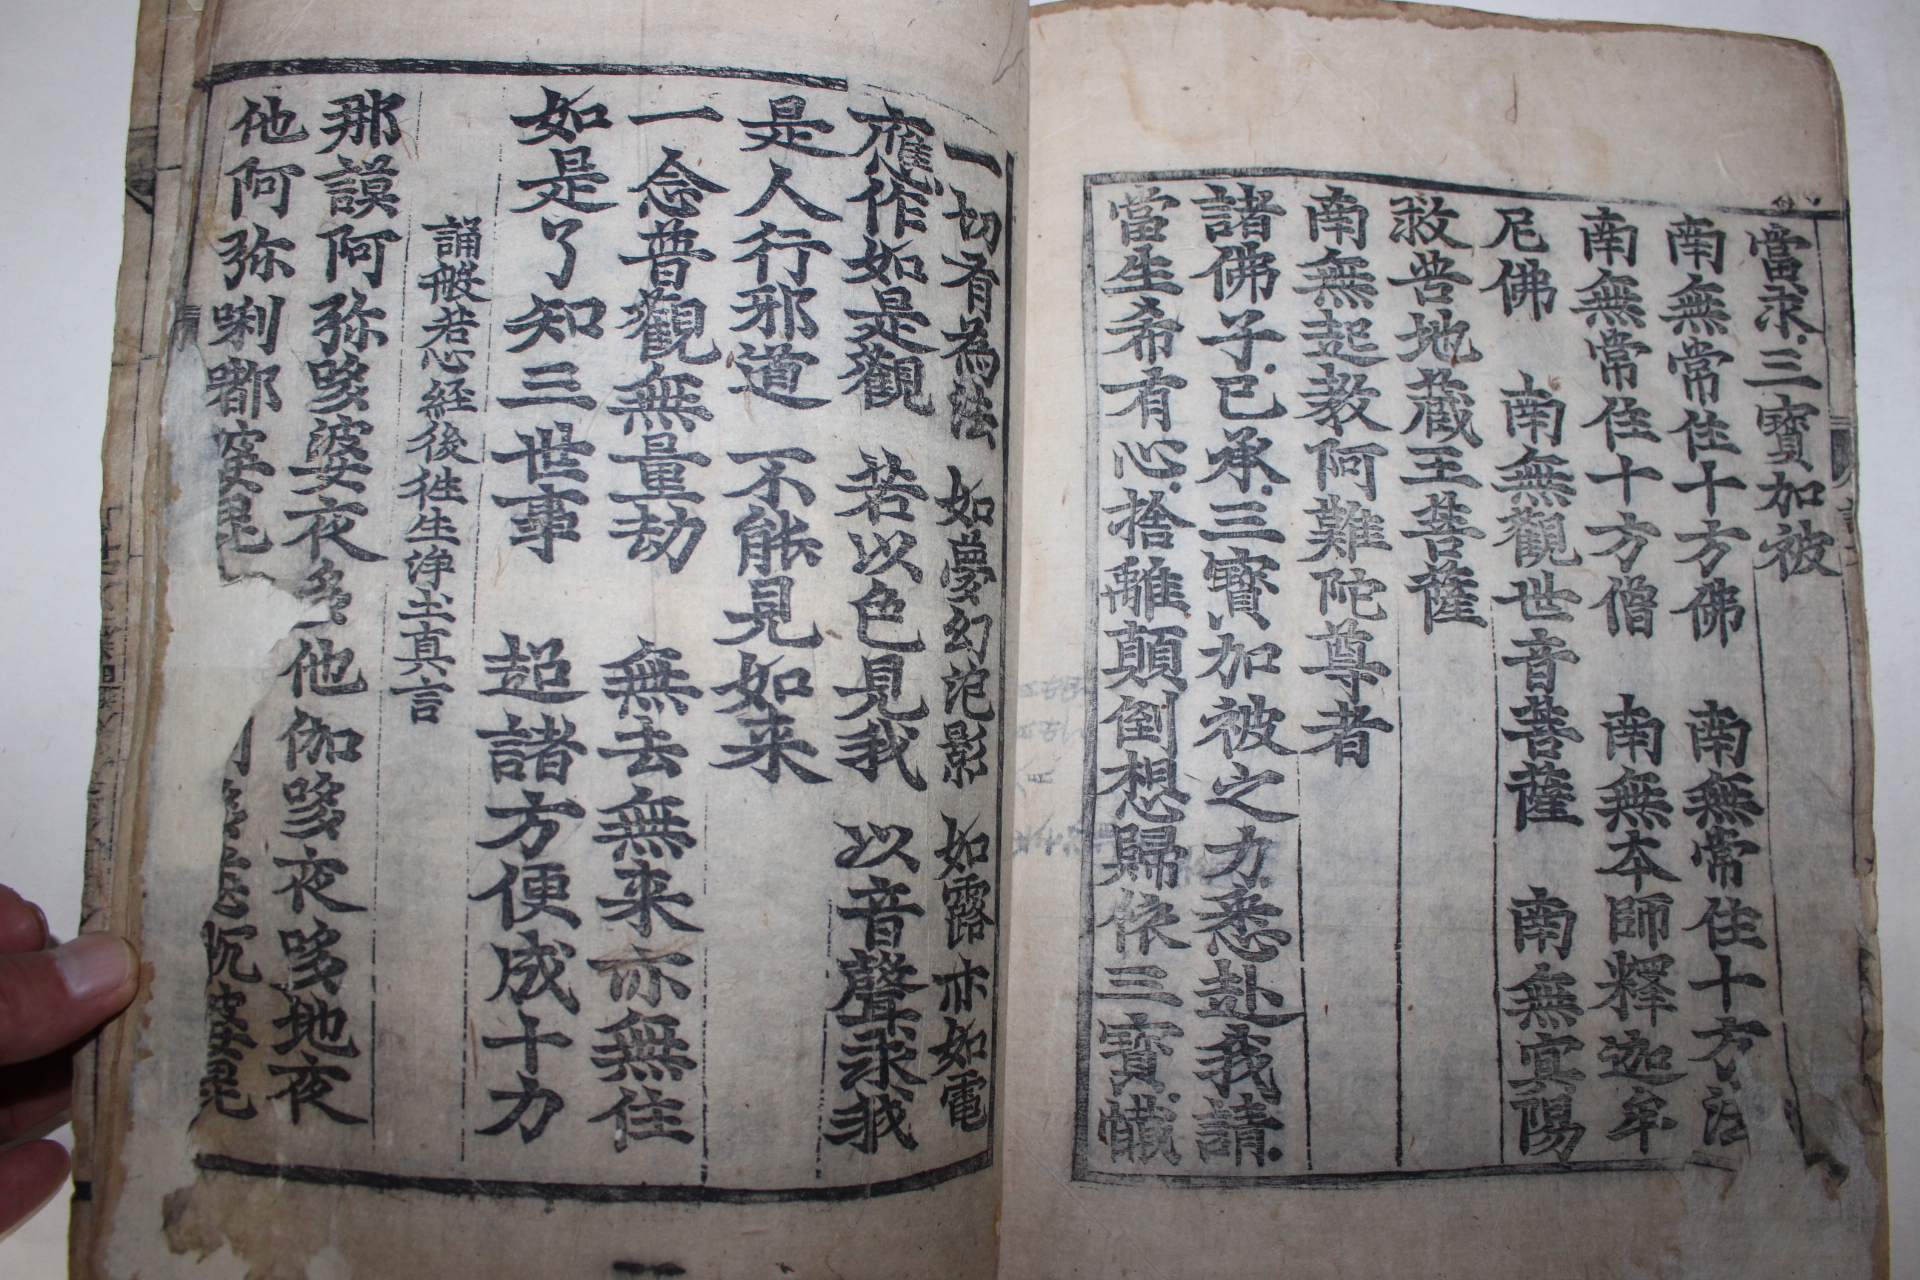 當求三寶加被
南無常住十方佛 南無常住十方法
南無常住十方僧 南無本師釋迦牟
尼佛 南無觀世音菩薩 南無冥陽
救苦地蔵王菩薩
南無起教阿難陀尊者
諸佛子已承三寶加被之力悉赴我請
當生希有心捨離顛倒想歸依三寶懺
一切有為法 如夢幻泡影 如露亦如電
應作如是觀 若以色見我 以音聲求我
是人行邪道 不能見如来
一念普觀無量劫 無去無来亦無住
如是了知三世事 超諸方便成十力
誦般若心経後徃生淨土真言
那謨阿弥哆婆夜哆他伽哆夜哆地夜
他阿弥唎都婆毘